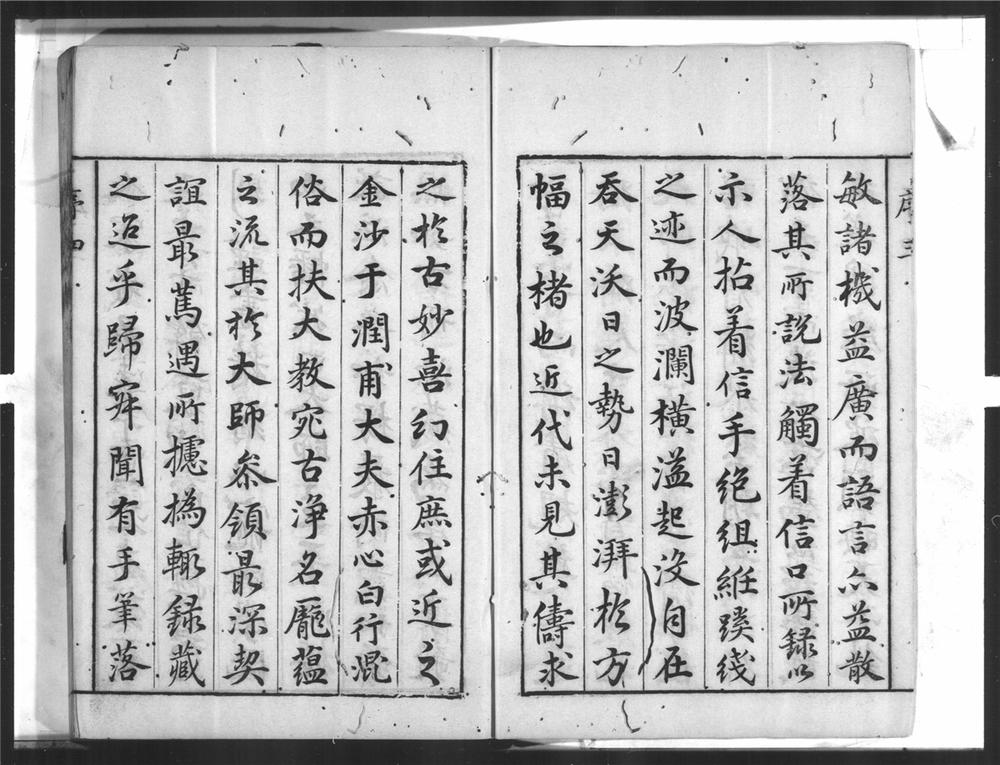 序三
敏諸機益廣而語言亦益散
落其所說法觸着信口所録以
示人拈着信手绝組絍蹊綫
之迹而波瀾橫溢起沒自在
吞天沃日之勢日澎湃於方
幅之楮也近代未見其儔求
之於古妙喜幻住庶或近之
金沙于潤甫大夫赤心白行混
俗而扶大教宛古淨名龐蘊
之流其於大師叅領最深契
誼最篤遇所攄撝輙録藏
之迨乎歸寂聞有手筆落
序四